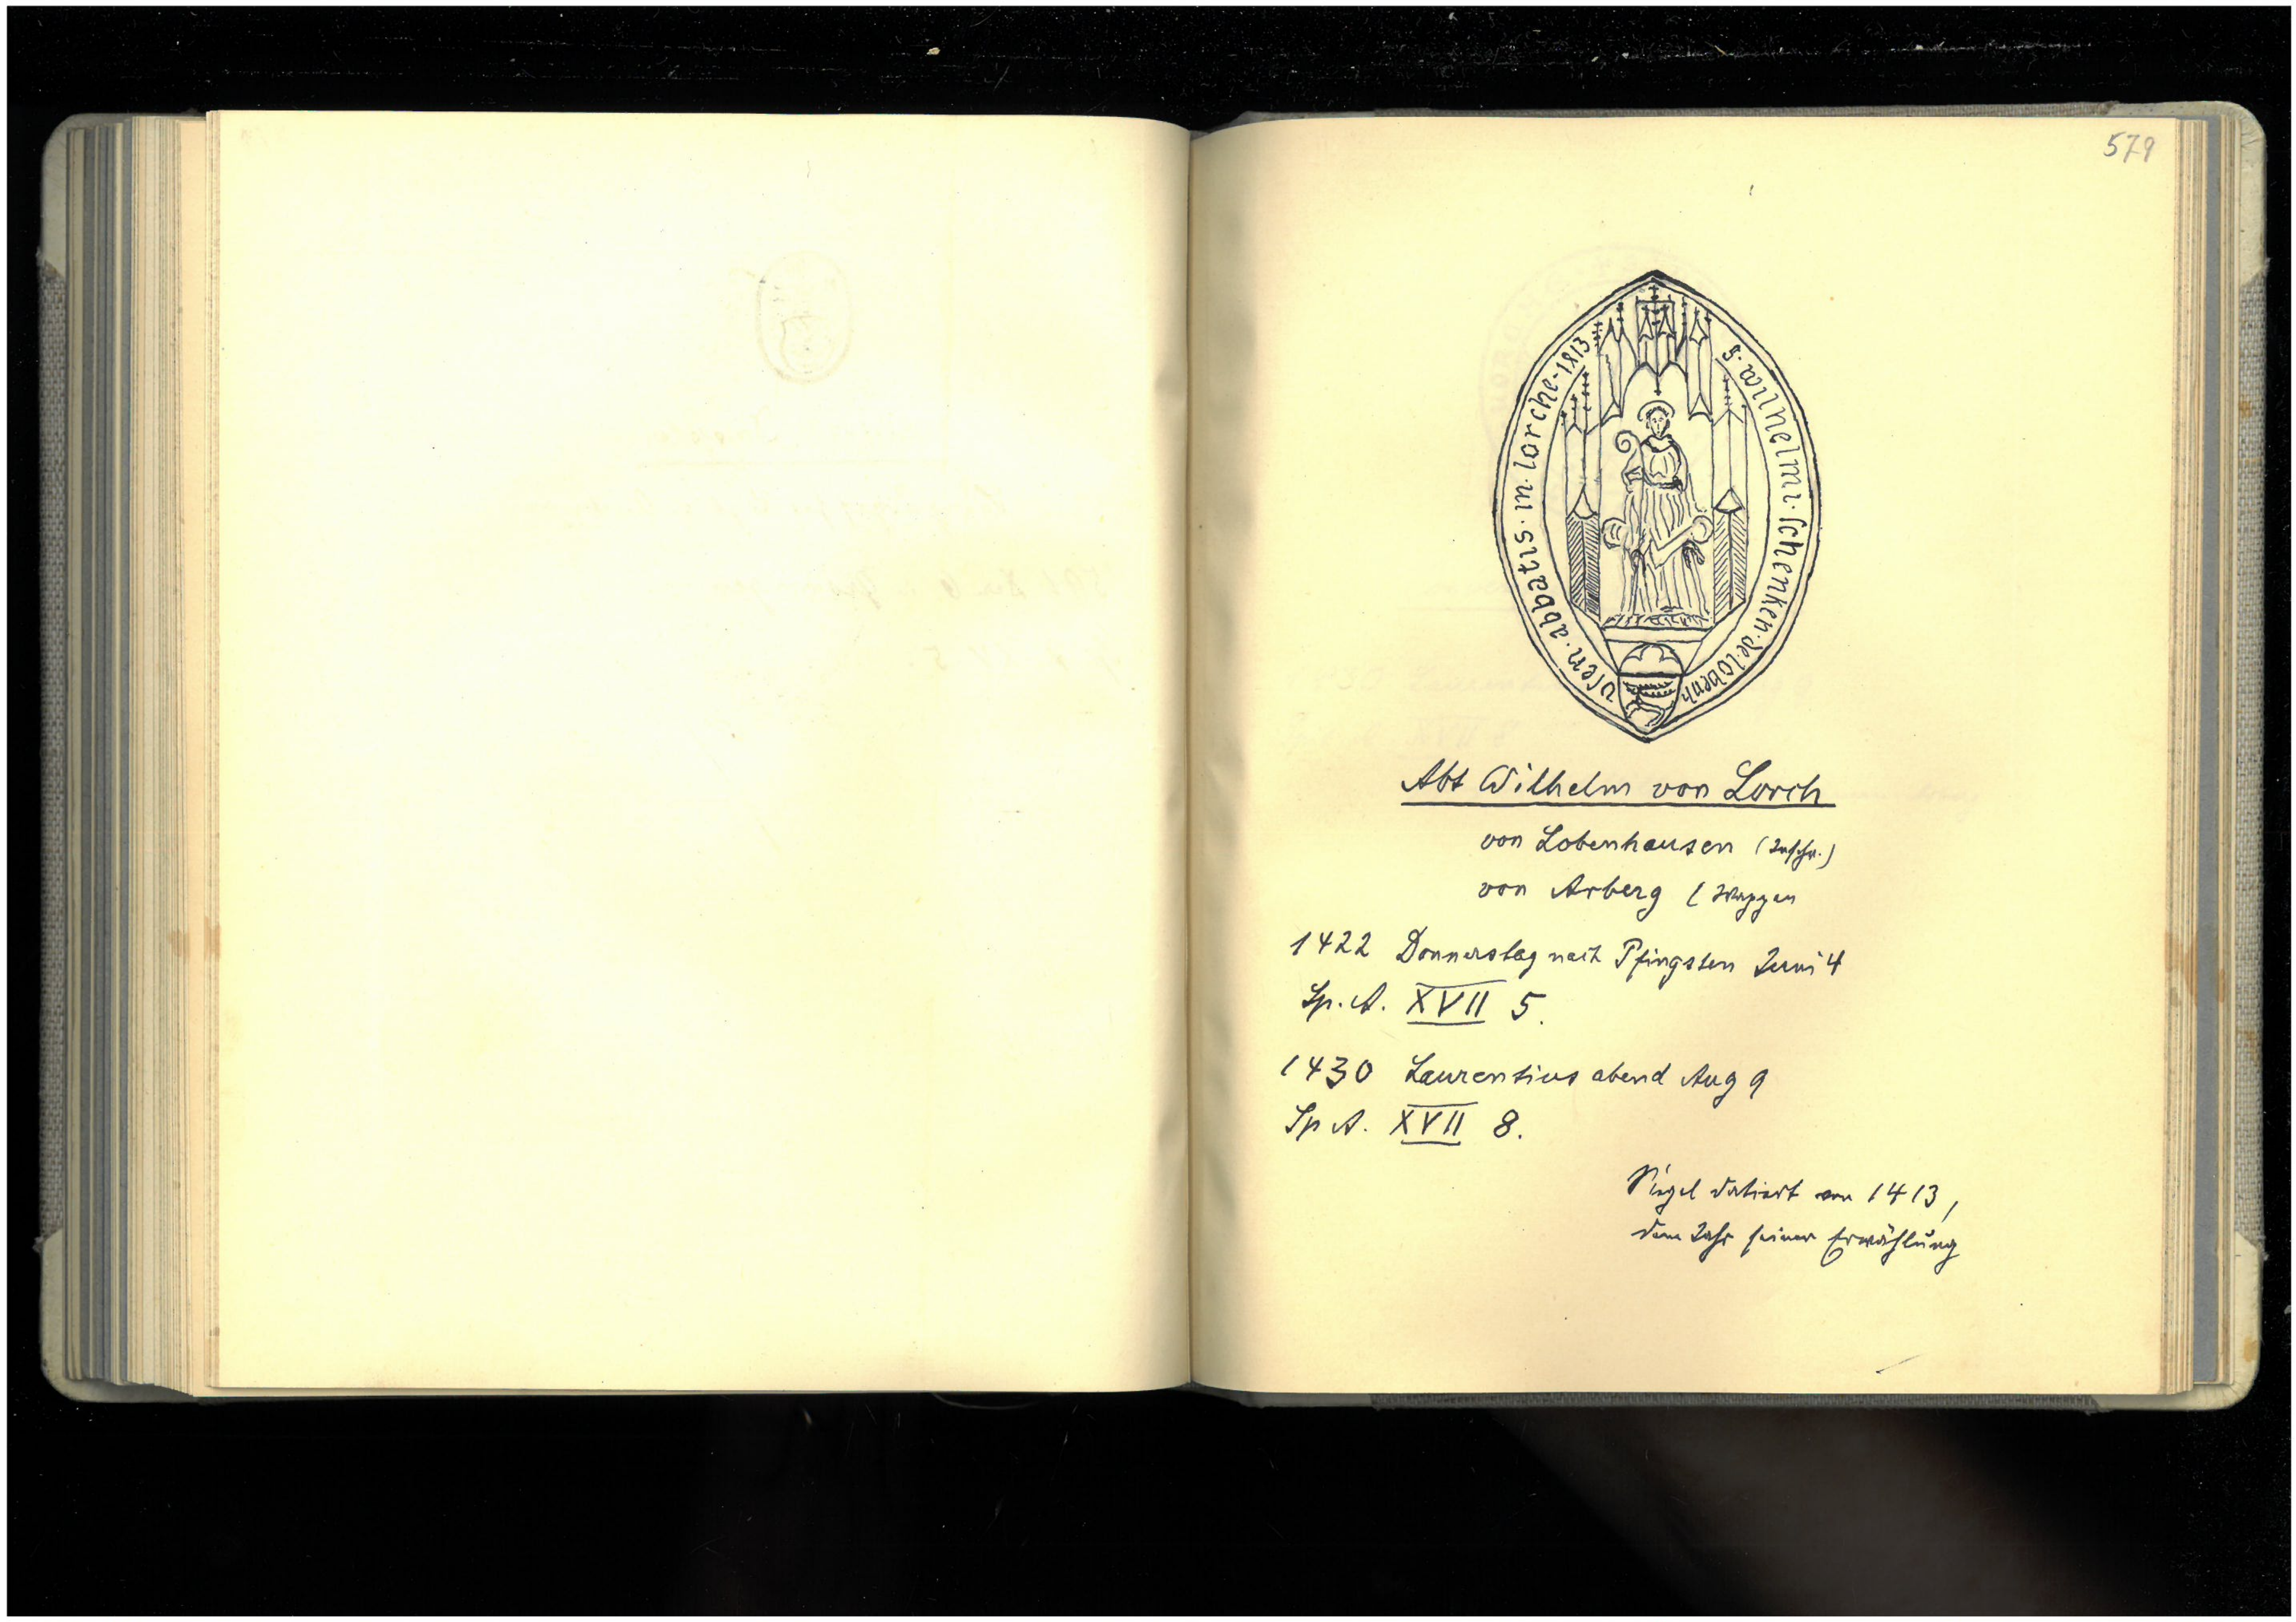 579
S · wilhelmi · schenken · de · lobenh
vsen · abbatis · in · lorche · 1813
Abt Wilhelm von Lorch
von Lobenhausen (Inschr.)
von Arberg (Wappen
1422 Donnerstag nach Pfingsten Juni 4
Sp. A. XVII 5.
1430 Laurentius abend Aug 9
Sp A. XVII 8.
Siegel datiert von 1413,
dem Jahr seiner Erwählung